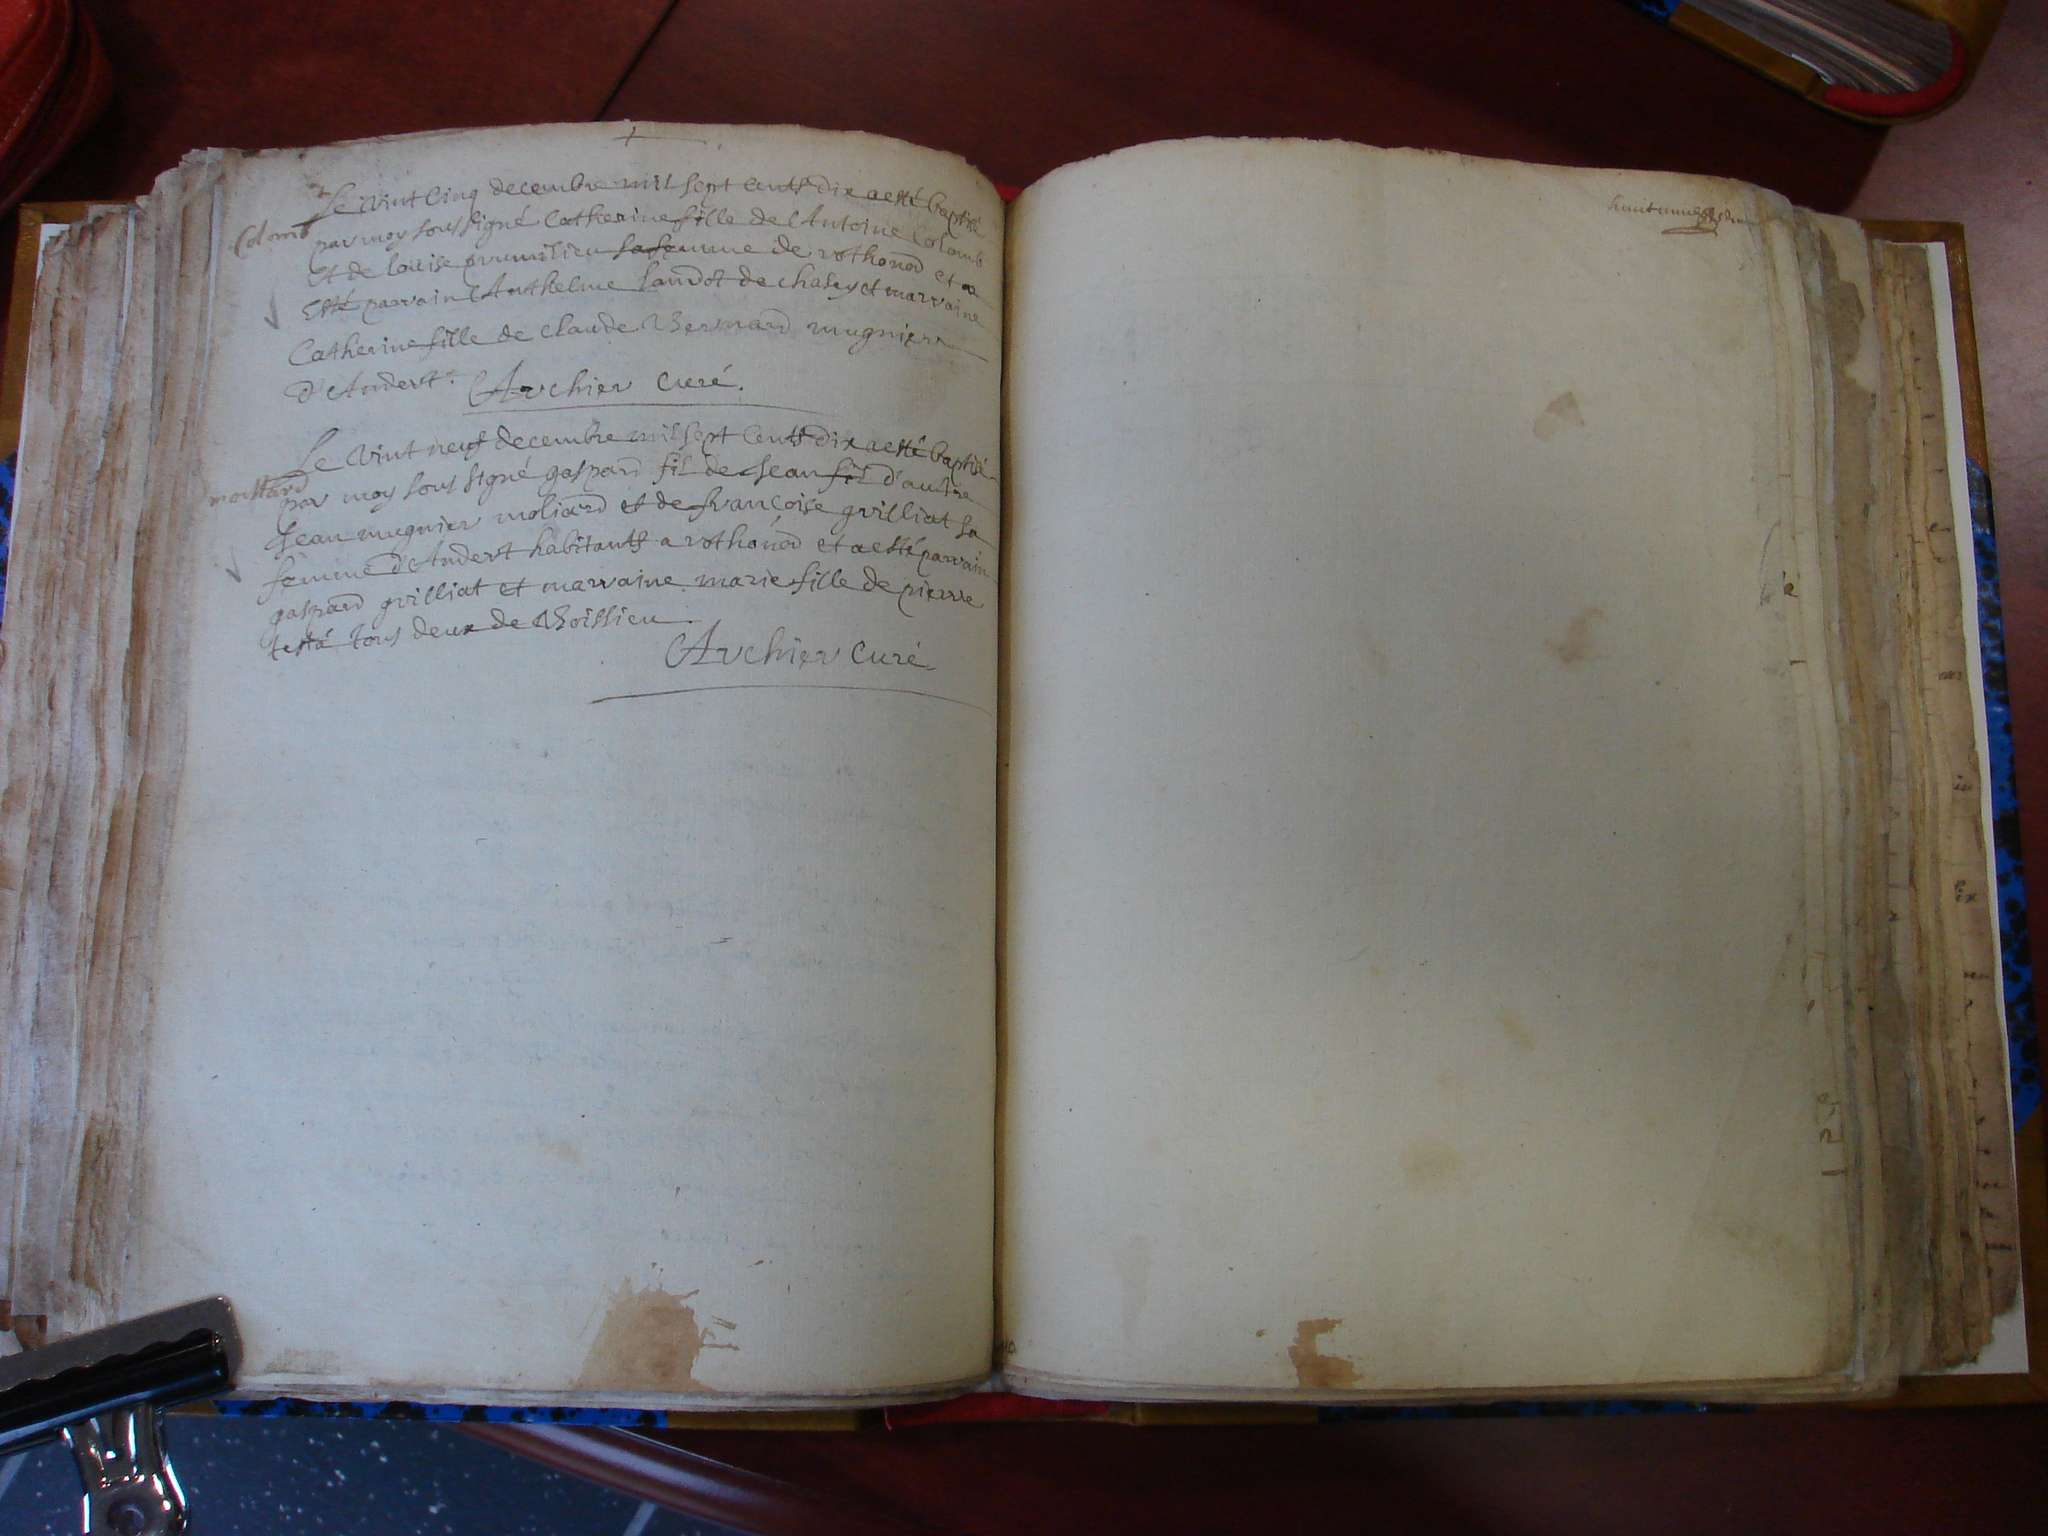 Colomb
Le vint cinq decembre mil sept cents dix a esté baptisé
par moy sous signé Catherine fille de Antoine Colomb
et de louise prumilieu sa femme de rothonod et a
esté parrain Anthelme landot de chasey et marraine
Catherine fille de claude Bernard mugnier
d'Andert. Archier curé.
Le vint neuf decembre mil sept cents dix a esté baptisé
par moy sous signé gaspard fil de Jean fil d'autre
Jean mugnier moliard et de francoise grilliat sa
femme d'Andert habitants a rothonod et a esté parrain
gaspard grilliat et marraine marie fille de pierre
testé tous deux de Boissieu.
Archier curé